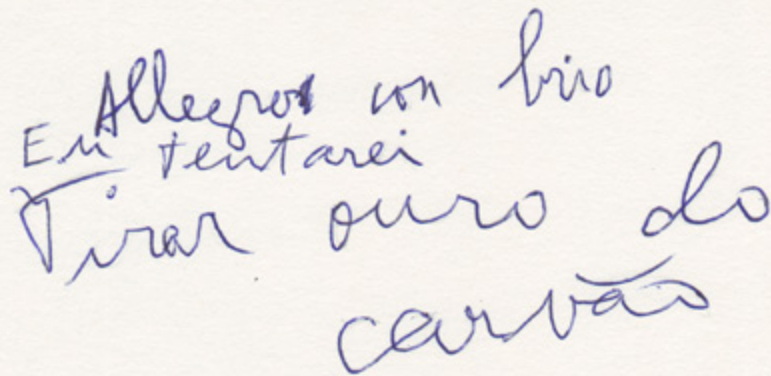 Allegro con brio
Eu tentarei
Tirar ouro do
carvão